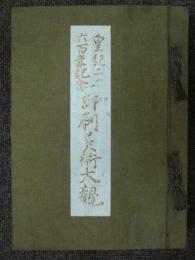 皇紀二千
六百年記念
印刷美術大観